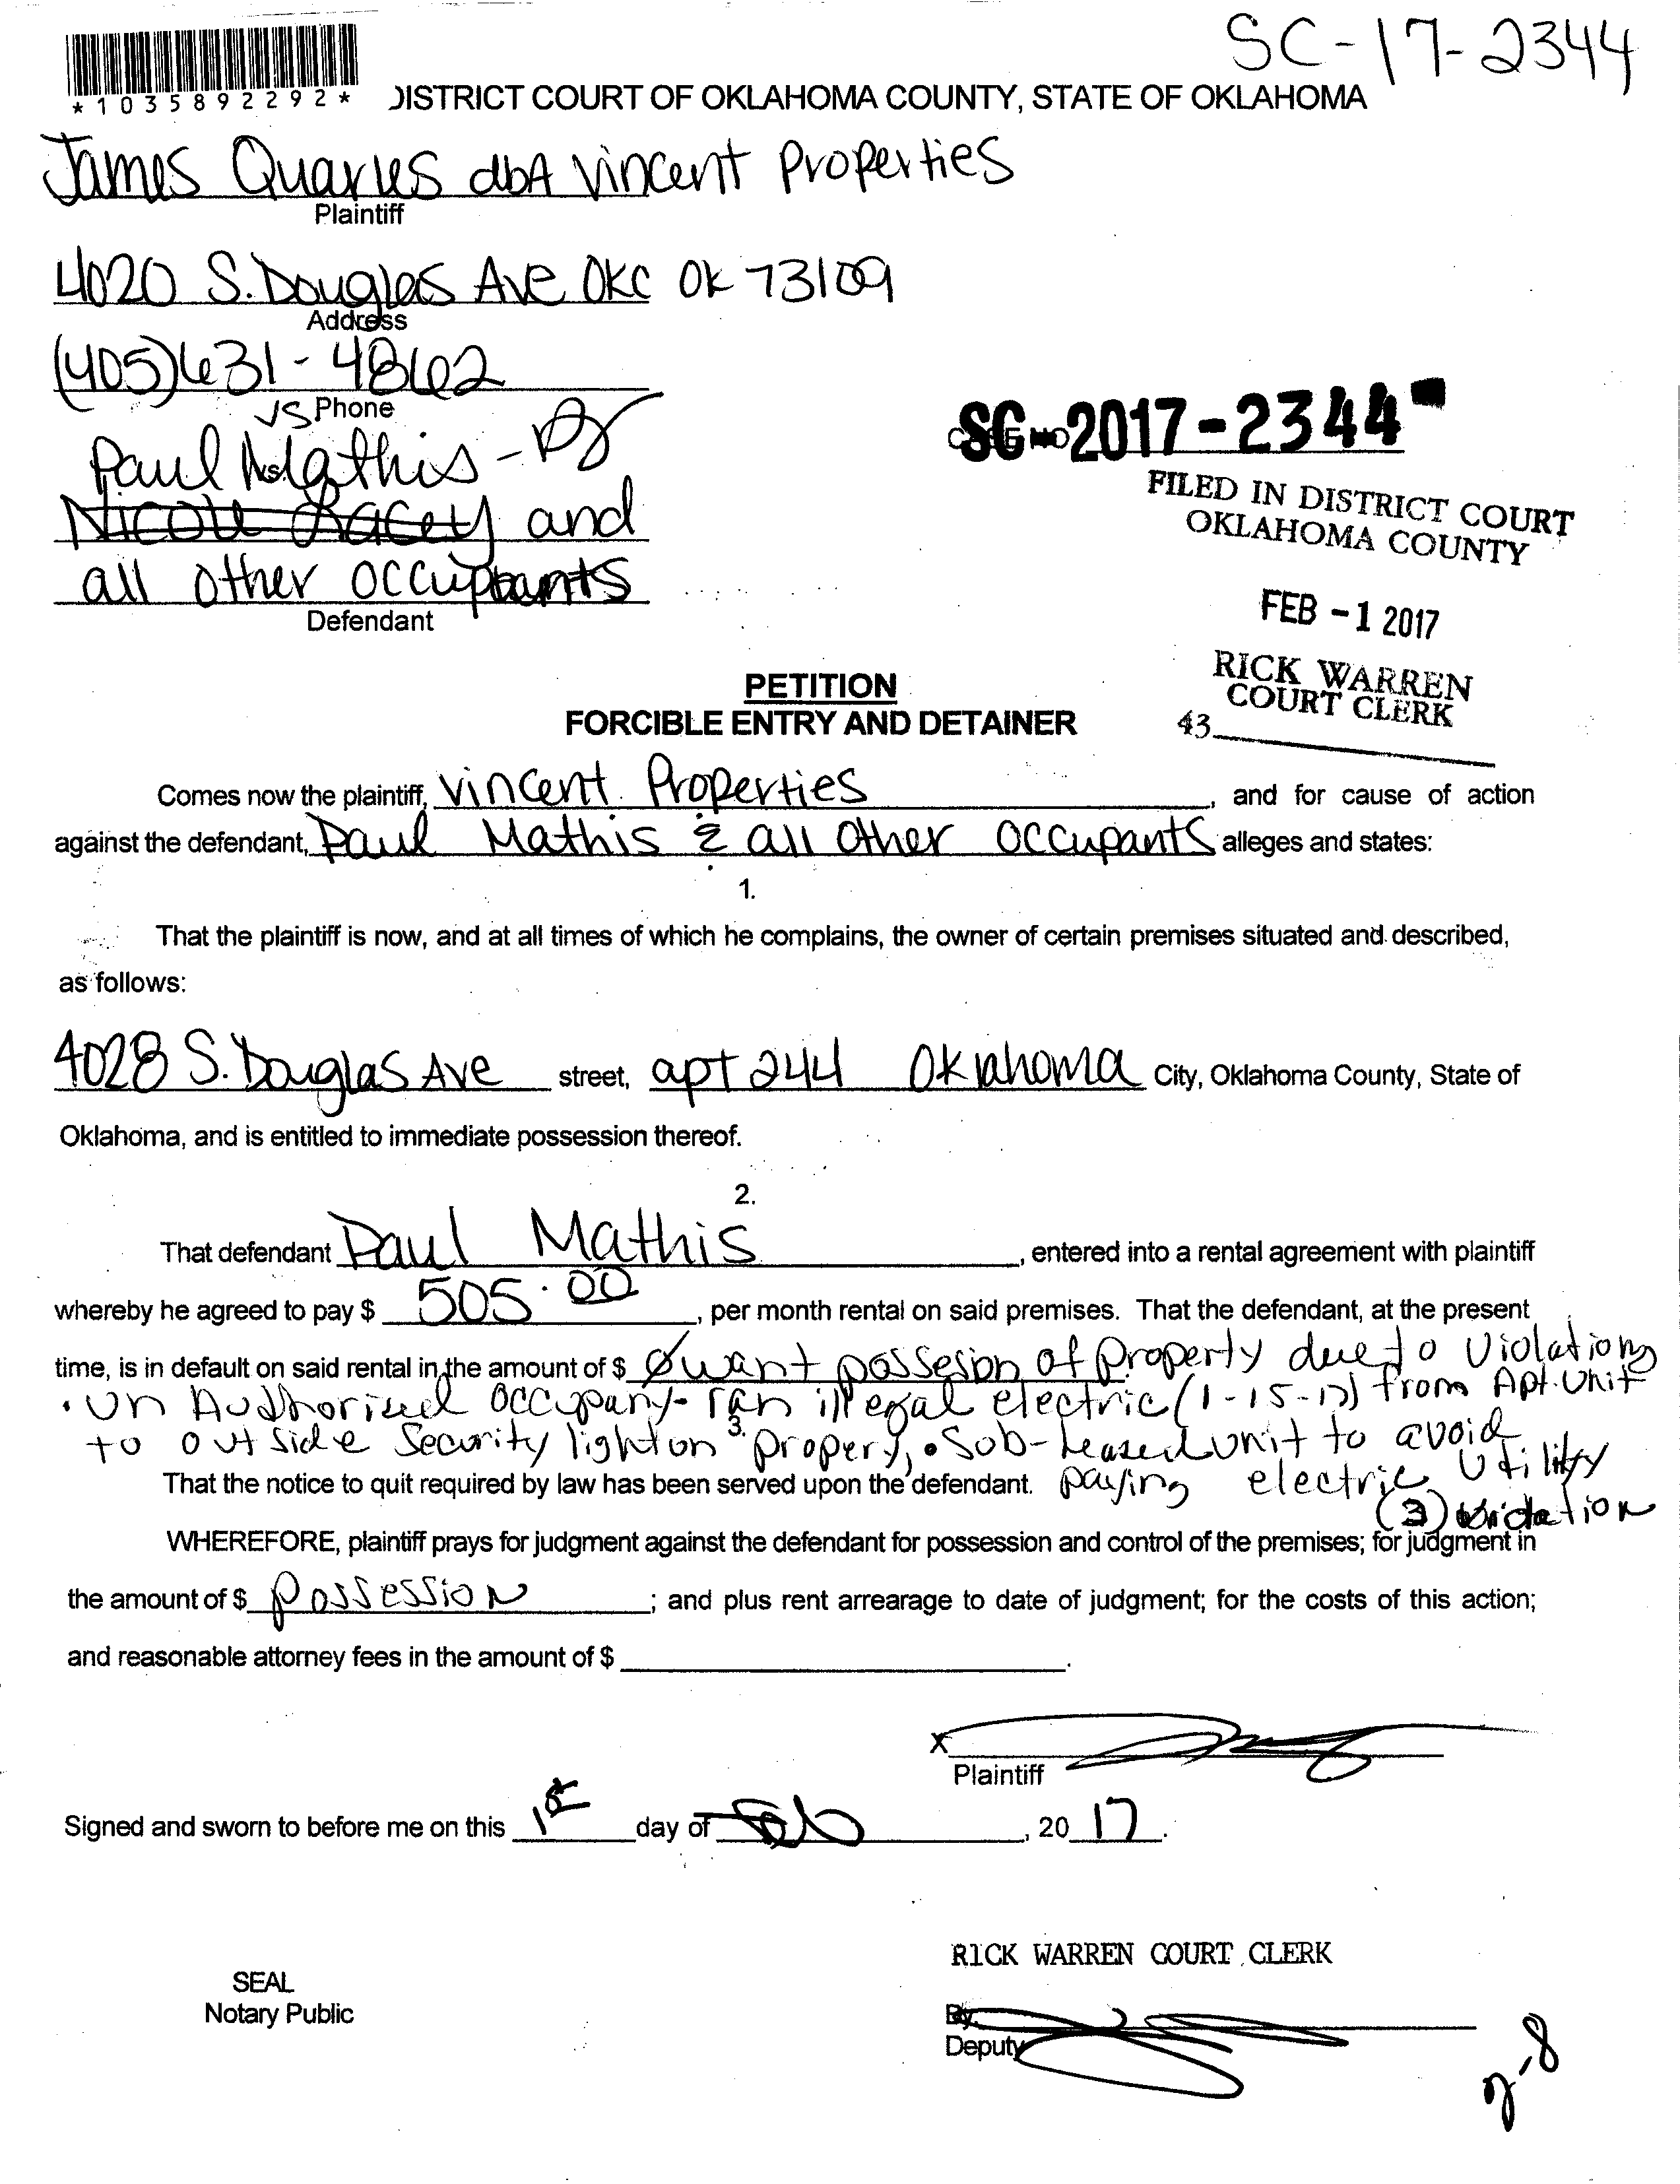 SC-17-2344
*1035892292*
DISTRICT COURT OF OKLAHOMA COUNTY, STATE OF OKLAHOMA
James Quarles dbA Vincent Properties
Plaintiff
4020 S. Douglas Ave OKC OK 73109
Address
(405)631-4862
Phone
VS.
Paul Mathis -
SC-2017-2344
Nicole Lacey and
all other occupants
Defendant
FILED IN DISTRICT COURT
OKLAHOMA COUNTY
FEB -1 2017
RICK WARREN
COURT CLERK
43
PETITION
FORCIBLE ENTRY AND DETAINER
Comes now the plaintiff, Vincent Properties, and for cause of action
against the defendant, Paul Mathis & all other occupants alleges and states:
1.
That the plaintiff is now, and at all times of which he complains, the owner of certain premises situated and described,
as follows:
4028 S. Douglas Ave street, apt 244 Oklahoma City, Oklahoma County, State of
Oklahoma, and is entitled to immediate possession thereof.
2.
That defendant Paul Mathis, entered into a rental agreement with plaintiff
whereby he agreed to pay $ 505.00, per month rental on said premises. That the defendant, at the present
time, is in default on said rental in the amount of $ Ø want possesion of property due to violations
• un Authorized occupany- ran illegal electric (1-15-17) from Apt. Unit
to outside security light on propery, • Sub-leased unit to avoid
3.
That the notice to quit required by law has been served upon the defendant. paying electric utility
(3) violation
WHEREFORE, plaintiff prays for judgment against the defendant for possession and control of the premises; for judgment in
the amount of $ Possession; and plus rent arrearage to date of judgment; for the costs of this action;
and reasonable attorney fees in the amount of $
X
Plaintiff
Signed and sworn to before me on this 1st day of Feb, 2017.
RICK WARREN COURT CLERK
SEAL
Notary Public
By
Deputy
2-8